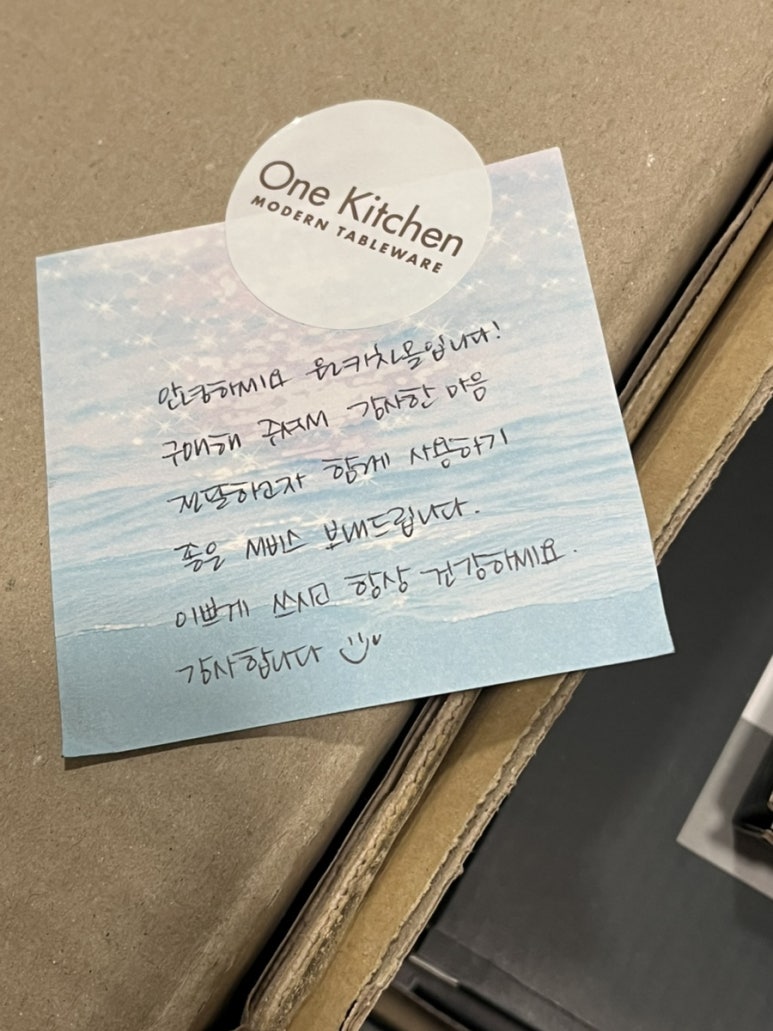 One Kitchen
MODERN TABLEWARE
안녕하세요 원키친몰입니다!
구매해 주셔서 감사한 마음
전달하고자 함께 사용하기
좋은 서비스 보내드립니다.
이쁘게 쓰시고 항상 건강하세요.
감사합니다